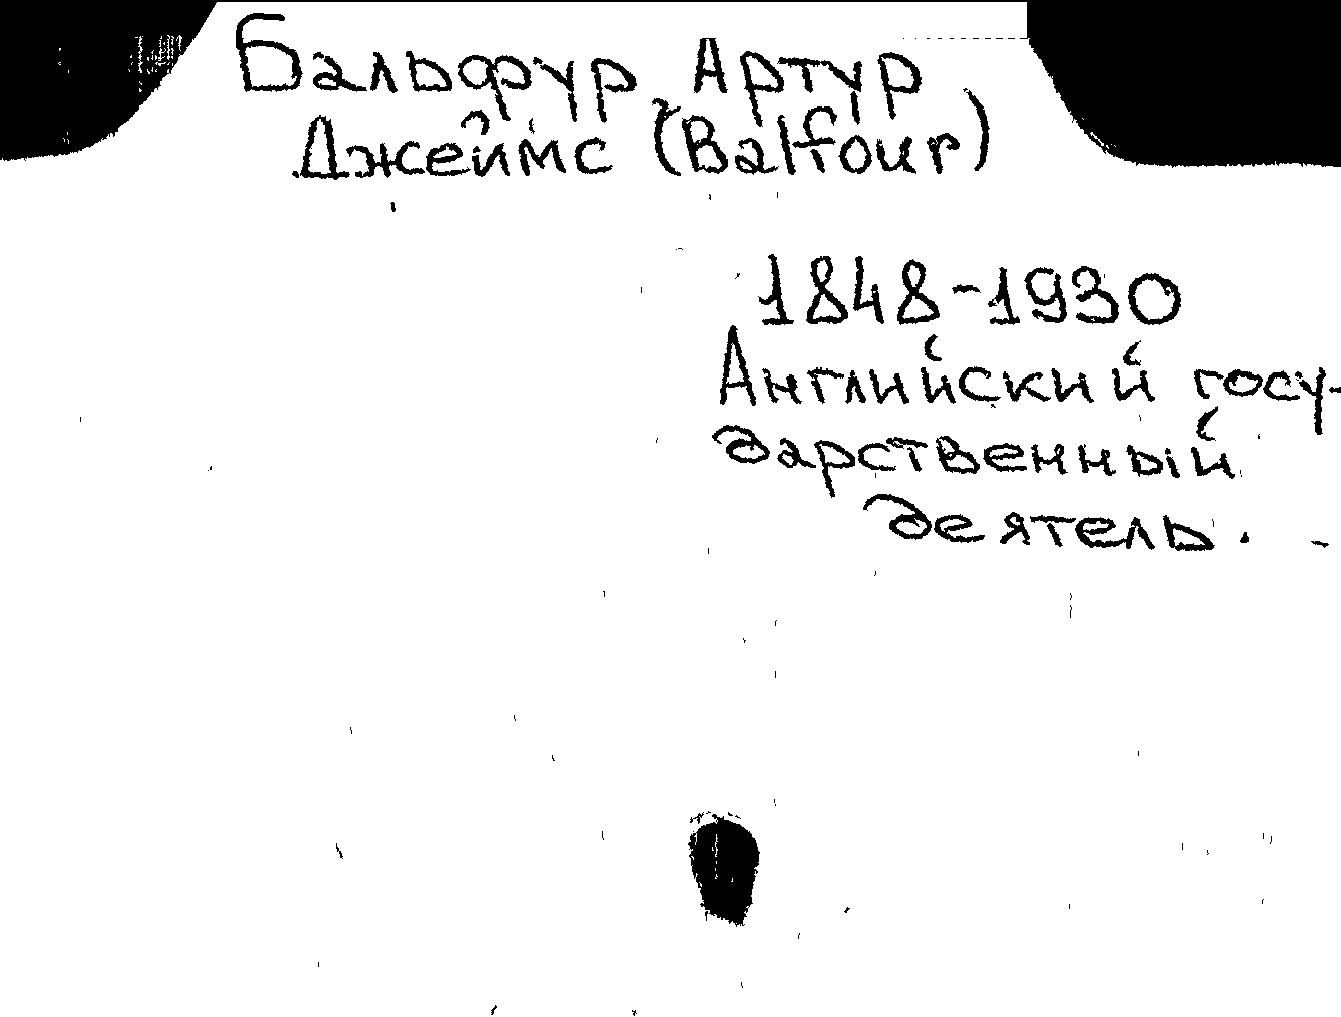 Бальфур, Артур
Джеймс (Balfour)
1848-1930
Английский госу-
дарственный
деятель.